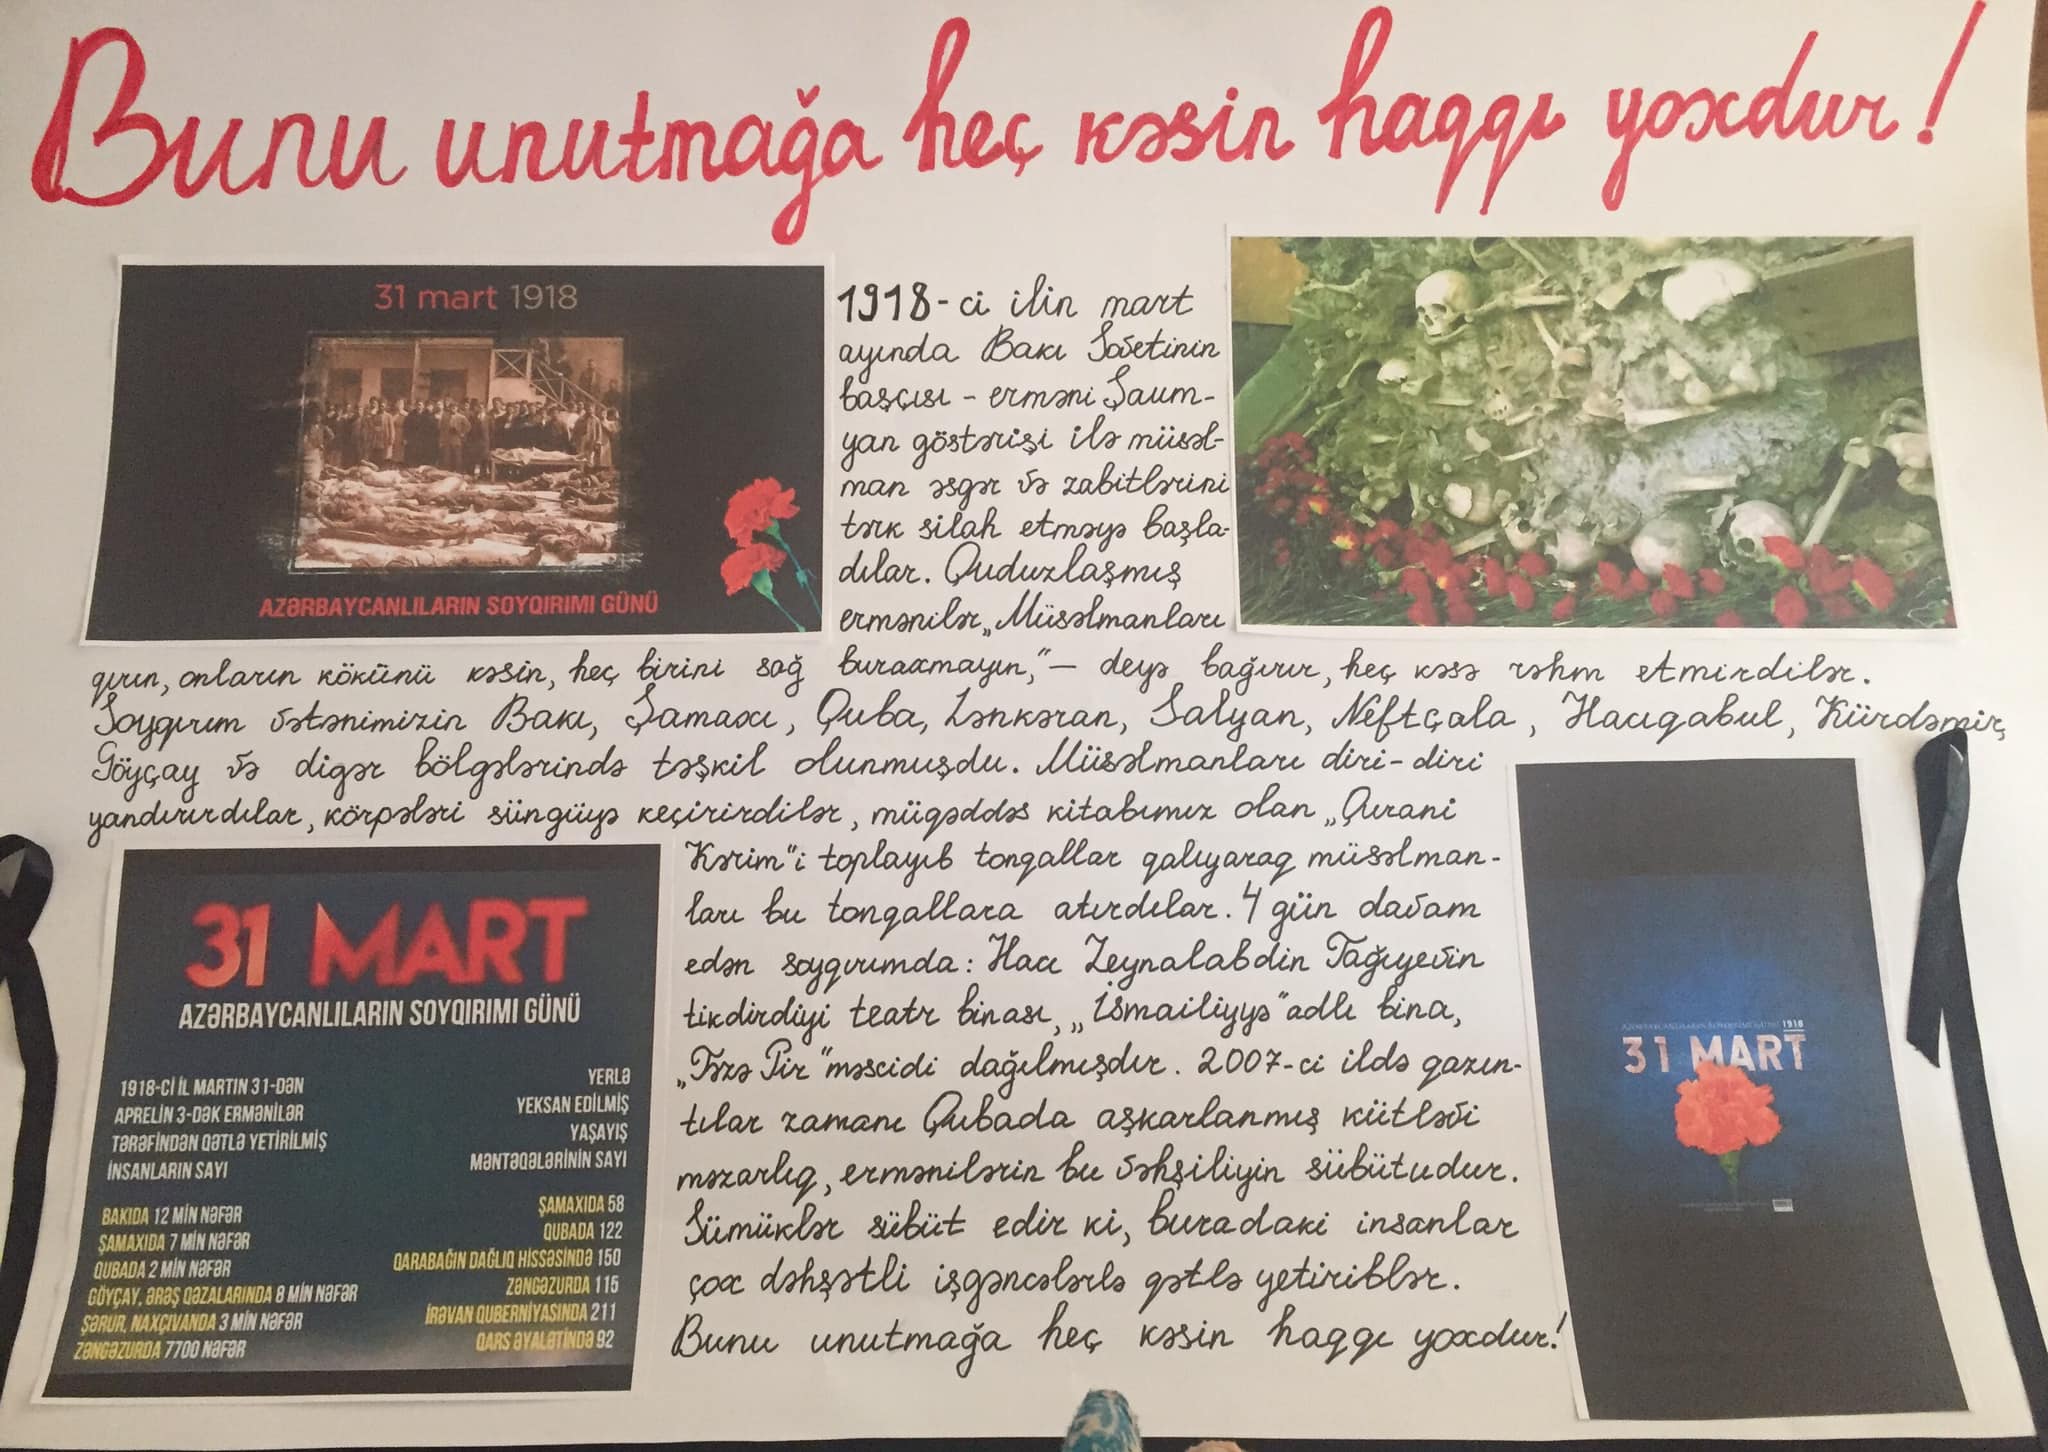 Bunu unutmağa heç kəsin haqqı yoxdur!
31 mart 1918
AZƏRBAYCANLILARIN SOYQIRIMI GÜNÜ
1918-ci ilin mart
ayında Bakı Sovetinin
başçısı - erməni Şaum-
yan göstərişi ilə müsəl-
man əsgər və zabitlərini
tərk silah etməyə başla-
dılar. Quduzlaşmış
ermənilər „Müsəlmanları
qırın, onların kökünü kəsin, heç birini sağ buraxmayın,“ — deyə bağırır, heç kəsə rəhm etmirdilər.
Soyqırım vətənimizin Bakı, Şamaxı, Quba, Lənkəran, Salyan, Neftçala, Hacıqabul, Kürdəmir,
Göyçay və digər bölgələrində təşkil olunmuşdu. Müsəlmanları diri-diri
yandırırdılar, körpələri süngüyə keçirirdilər, müqəddəs kitabımız olan „Qurani
Kərim“i toplayıb tonqallar qalıyaraq müsəlman-
ları bu tonqallara atırdılar. 4 gün davam
edən soyqırımda: Hacı Zeynalabdin Tağıyevin
tikdirdiyi teatr binası, „İsmailiyyə“ adlı bina,
„Təzə Pir“ məscidi dağılmışdır. 2007-ci ildə qazın-
tılar zamanı Qubada aşkarlanmış kütləvi
məzarlıq, ermənilərin bu vəhşiliyin sübütudur.
Sümüklər sübüt edir ki, buradaki insanlar
çox dəhşətli işgəncələrlə qətlə yetiriblər.
Bunu unutmağa heç kəsin haqqı yoxdur!
31 MART
AZƏRBAYCANLILARIN SOYQIRIMI GÜNÜ
1918-Cİ İL MARTIN 31-DƏN
APRELİN 3-DƏK ERMƏNİLƏR
TƏRƏFİNDƏN QƏTLƏ YETİRİLMİŞ
İNSANLARIN SAYI
BAKIDA 12 MİN NƏFƏR
ŞAMAXIDA 7 MİN NƏFƏR
QUBADA 2 MİN NƏFƏR
GÖYÇAY, ƏRƏŞ QƏZALARINDA 8 MİN NƏFƏR
ŞƏRUR, NAXÇIVANDA 3 MİN NƏFƏR
ZƏNGƏZURDA 7700 NƏFƏR
YERLƏ
YEKSAN EDİLMİŞ
YAŞAYIŞ
MƏNTƏQƏLƏRİNİN SAYI
ŞAMAXIDA 58
QUBADA 122
QARABAĞIN DAĞLIQ HİSSƏSİNDƏ 150
ZƏNGƏZURDA 115
İRƏVAN QUBERNİYASINDA 211
QARS ƏYALƏTİNDƏ 92
AZƏRBAYCANLILARIN SOYQIRIMI GÜNÜ 1918
31 MART